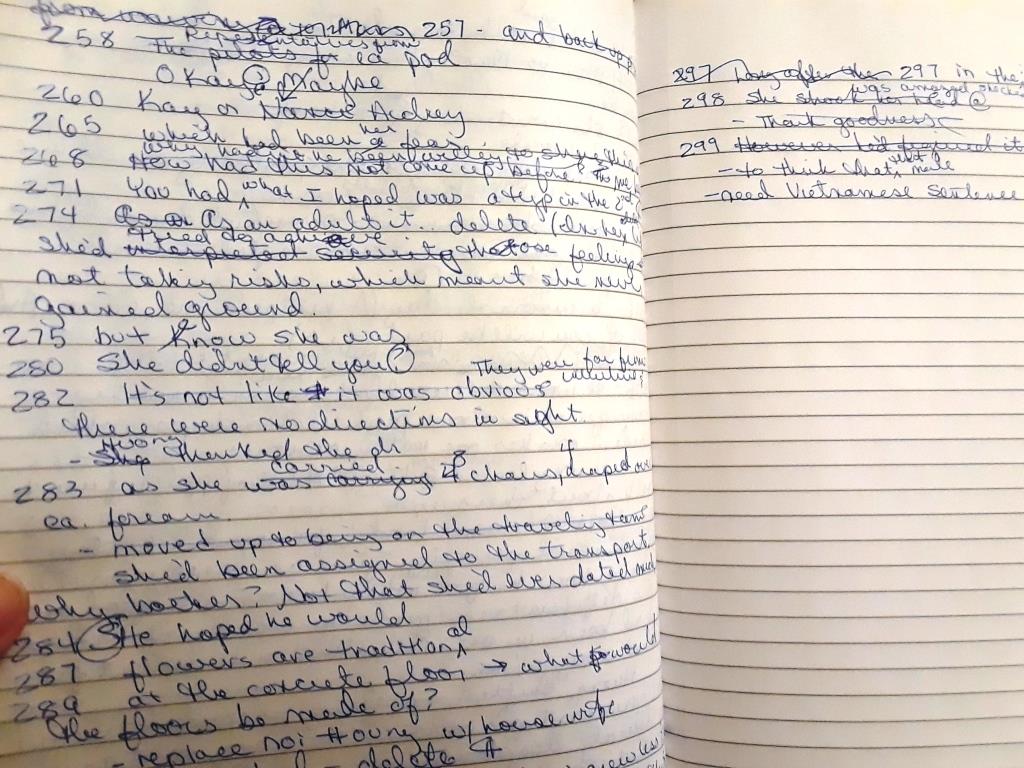 257 - and back up
258 Representatives from
The pilots of ea pod
Okay? Maybe
260 Kay or Audrey
265 which had been her fear
268 How has this not come up before?
271 You had what I hoped was a typ in the
274 As an adult it.. delete
tried to achieve
she'd interpreted security those feelings
not taking risks, which meant she never
gained ground.
275 but know she was
280 She didn't tell you?
They were far from
282 It's not like it was obvious
There were no directions in sight.
Huong
- She thanked the dr
carried
283 as she was carrying 4 chairs, draped over
ea. forearm.
- moved up to being on the traveling team
she'd been assigned to the transport
why bother? Not that she'd ever dated much
284 She hoped he would
287 flowers are traditional
289 at the concrete floor → what would
the floors be made of?
- replace noi Huong w/ housewife
delete
297 Long after the 297 in their
was amazed she
298 She shook her head
- Thank goodness
299 However he'd figured it
- to think that that made
- need Vietnamese sentence